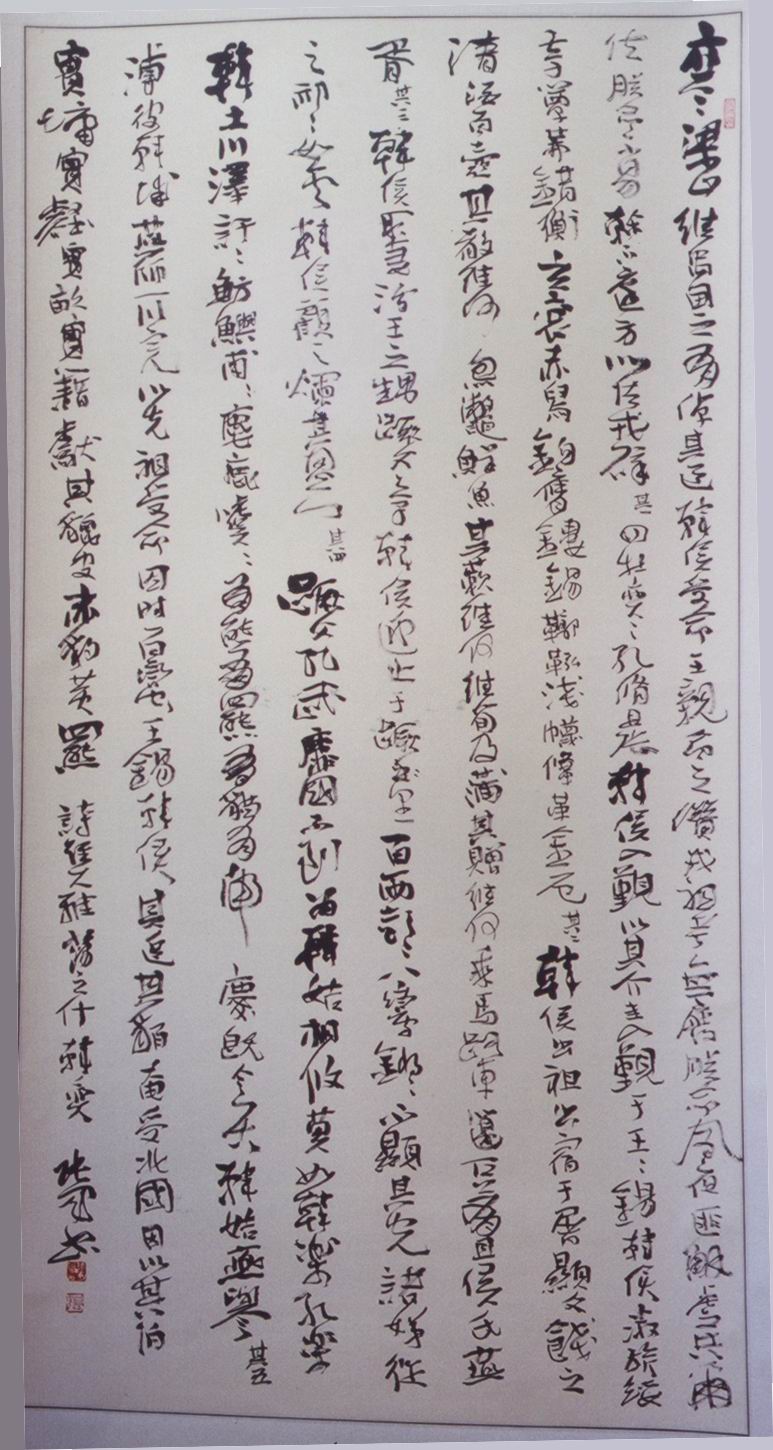 奕々梁山維禹甸之有倬其道韓侯受命王親命之纘戎祖考無廢朕命夙夜匪解虔共爾
位朕命不易榦不庭方以佐戎辟其一四牡奕々孔脩且張韓侯入覲以其介圭入覲于王々錫韓侯淑旂綏
章簟茀錯衡玄袞赤舄鉤膺鏤錫鞹鞃淺幭鞗革金厄其二韓侯出祖出宿于屠顯父餞之
清酒百壺其殽維何炰鼈鮮魚其蔌維何維筍及蒲其贈維何乘馬路車籩豆有且侯氏燕
胥其三韓侯取妻汾王之甥蹶父之子韓侯迎止于蹶之里百兩彭々八鸞鏘々不顯其光諸娣從
之祁々如雲韓侯顧之爛其盈門其四蹶父孔武靡國不到為韓姞相攸莫如韓樂孔樂
韓土川澤訏々魴鱮甫々麀鹿噳々有熊有羆有貓有虎慶既令居韓姞燕譽其五
溥彼韓城燕師所完以先祖受命因時百蠻王錫韓侯其追其貊奄受北國因以其伯
實墉實壑實畝實籍獻其貔皮赤豹黃羆 詩經大雅蕩之什韓奕